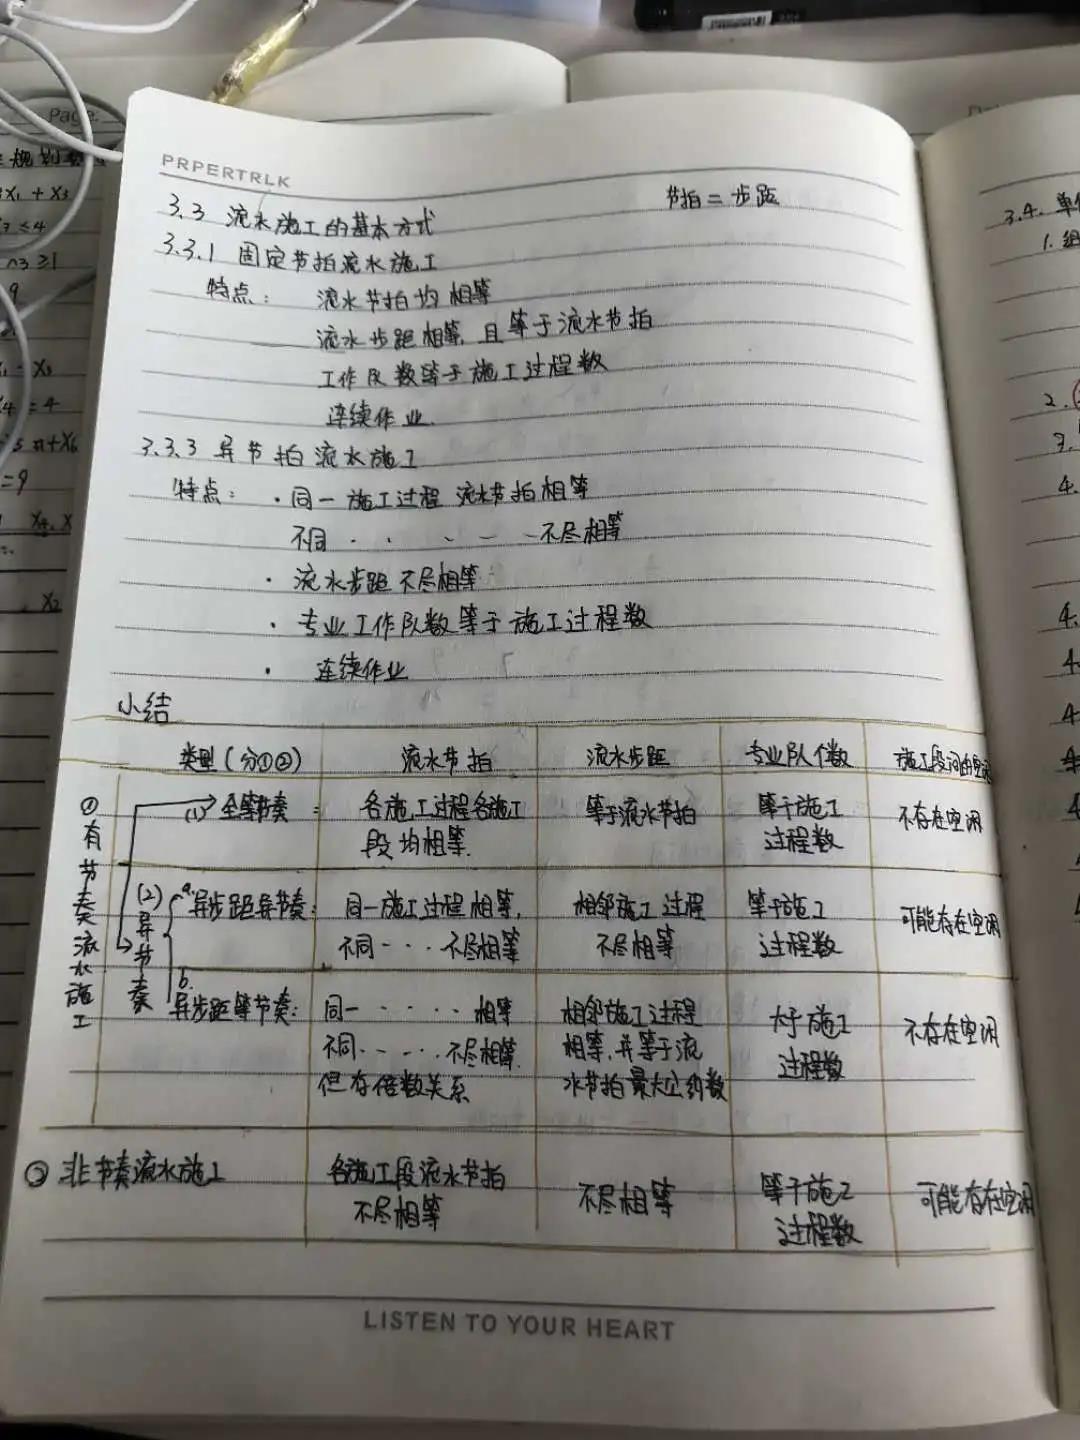 Page:
PRPERTRLK
节拍 = 步距
3.3 流水施工的基本方式
3.3.1 固定节拍流水施工
特点: 流水节拍均相等
流水步距相等, 且等于流水节拍
工作队数等于施工过程数
连续作业.
3.3.3 异节拍流水施工
特点: · 同一施工过程 流水节拍相等
不同 · · ~ ~ ~ 不尽相等
· 流水步距不尽相等
· 专业工作队数等于施工过程数
· 连续作业
小结
类型 (分①②) 流水节拍 流水步距 专业队伍数
①有节奏流水施工
(1) 全等节奏: 各施工过程各施工 等于流水节拍 等于施工 不存在空闲
段均相等. 过程数
(2) 异节奏
a. 异步距异节奏: 同一施工过程相等, 相邻施工过程 等于施工 可能存在空闲
不同一 · · 不尽相等 不尽相等 过程数
b. 异步距等节奏: 同一 · · · · 相等 相邻施工过程 大于施工 不存在空闲
不同 · - · · 不尽相等. 相等, 并等于流 过程数
但存倍数关系 水节拍最大公约数
② 非节奏流水施工 各施工段流水节拍 不尽相等 等于施工 可能存在空闲
不尽相等 过程数
LISTEN TO YOUR HEART
3.4.